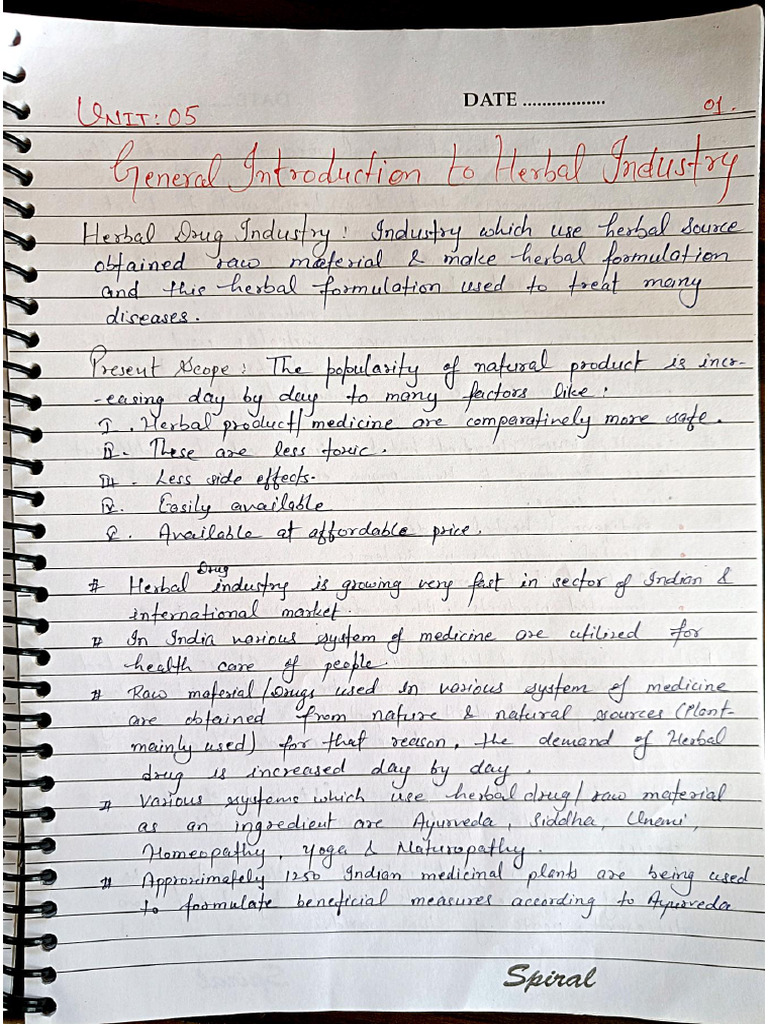 DATE .................
UNIT: 05
01.
General Introduction to Herbal Industry
Herbal Drug Industry: Industry which use herbal source
obtained raw material & make herbal formulation
and this herbal formulation used to treat many
diseases.
Present Scope: The popularity of natural product is incr-
-easing day by day to many factors like:
I. Herbal product/medicine are comparatively more safe.
II. These are less toxic.
III. Less side effects.
IV. Easily available
V. Available at affordable price.
# Herbal Drug industry is growing very fast in sector of Indian &
international market.
# In India various system of medicine are utilized for
health care of people.
# Raw material/Drugs used in various system of medicine
are obtained from nature & natural sources (Plant-
mainly used) for that reason, the demand of Herbal
drug is increased day by day.
# Various systems which use herbal drug/raw material
as an ingredient are Ayurveda, Siddha, Unani,
Homeopathy, Yoga & Naturopathy.
# Approximately 1250 Indian medicinal plants are being used
to formulate beneficial measures according to Ayurveda
Spiral